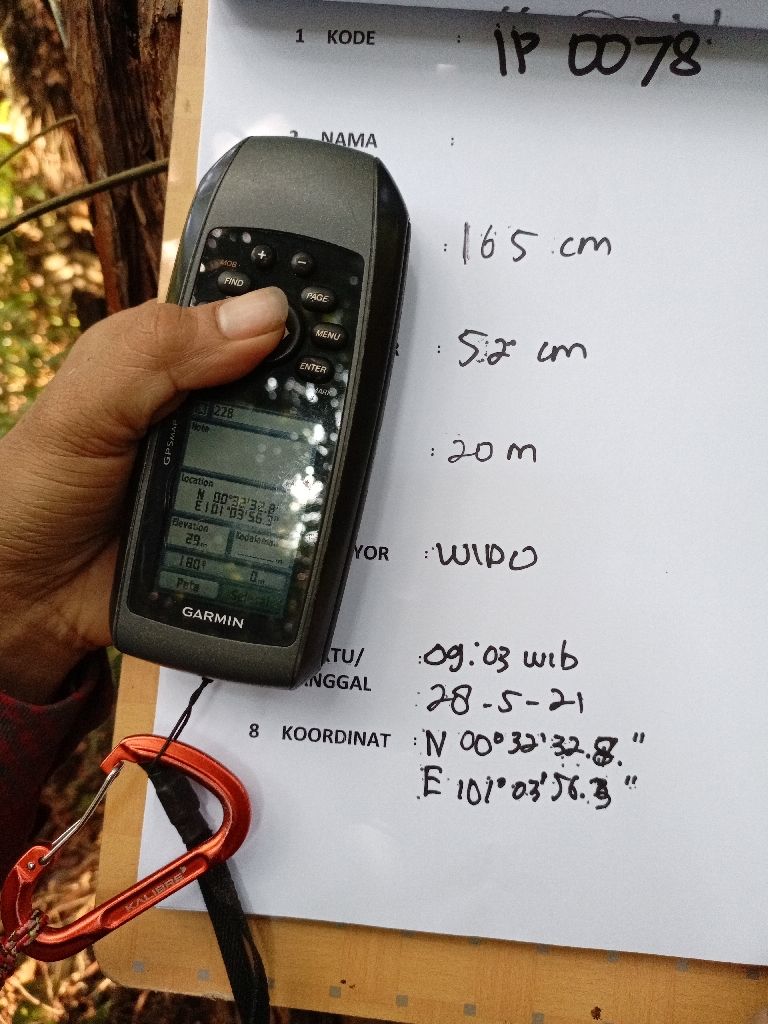 1 KODE : IP 0078
2 NAMA :
: 165 cm
R : 52 cm
: 20 m
YOR : WIDO
KTU/ : 09:03 wib
NGGAL 28-5-21
8 KOORDINAT : N 00°32'32.8"
E 101°03'56.3"
+ −
MOB
FIND PAGE
MENU
ENTER
MARK
GPSMAP
228
Note
Location
N 00°32'32.8"
E101°03'56.3"
Elevation
29m
180° 0m
Peta
GARMIN
KALIBRE